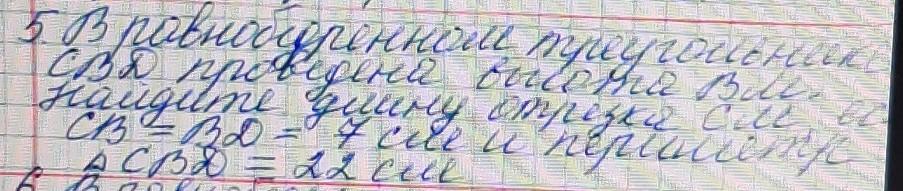 5. В равнобедренном треугольнике
CBD проведена высота BM.
Найдите длину отрезка CM, ес
CB = BD = 7 см и периметр
Δ CBD = 22 см
6. В